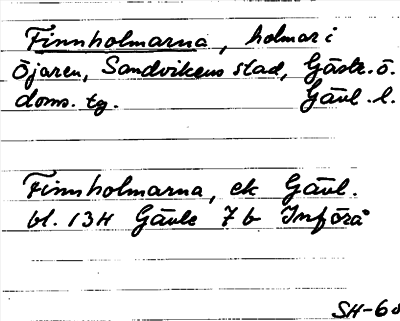 Finnholmarna, holmar i
Öjaren, Sandvikens stad, Gästr. ö.
doms. tg. Gävl. l.
Finnholmarna, ek Gävl.
bl. 13H Gävle 7b Införå
SH-68